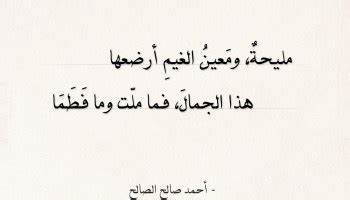 مليحةٌ، ومَعينُ الغيمِ أرضعها
هذا الجمالَ، فما ملّت وما فَطَمَا
- أحمد صالح الصالح